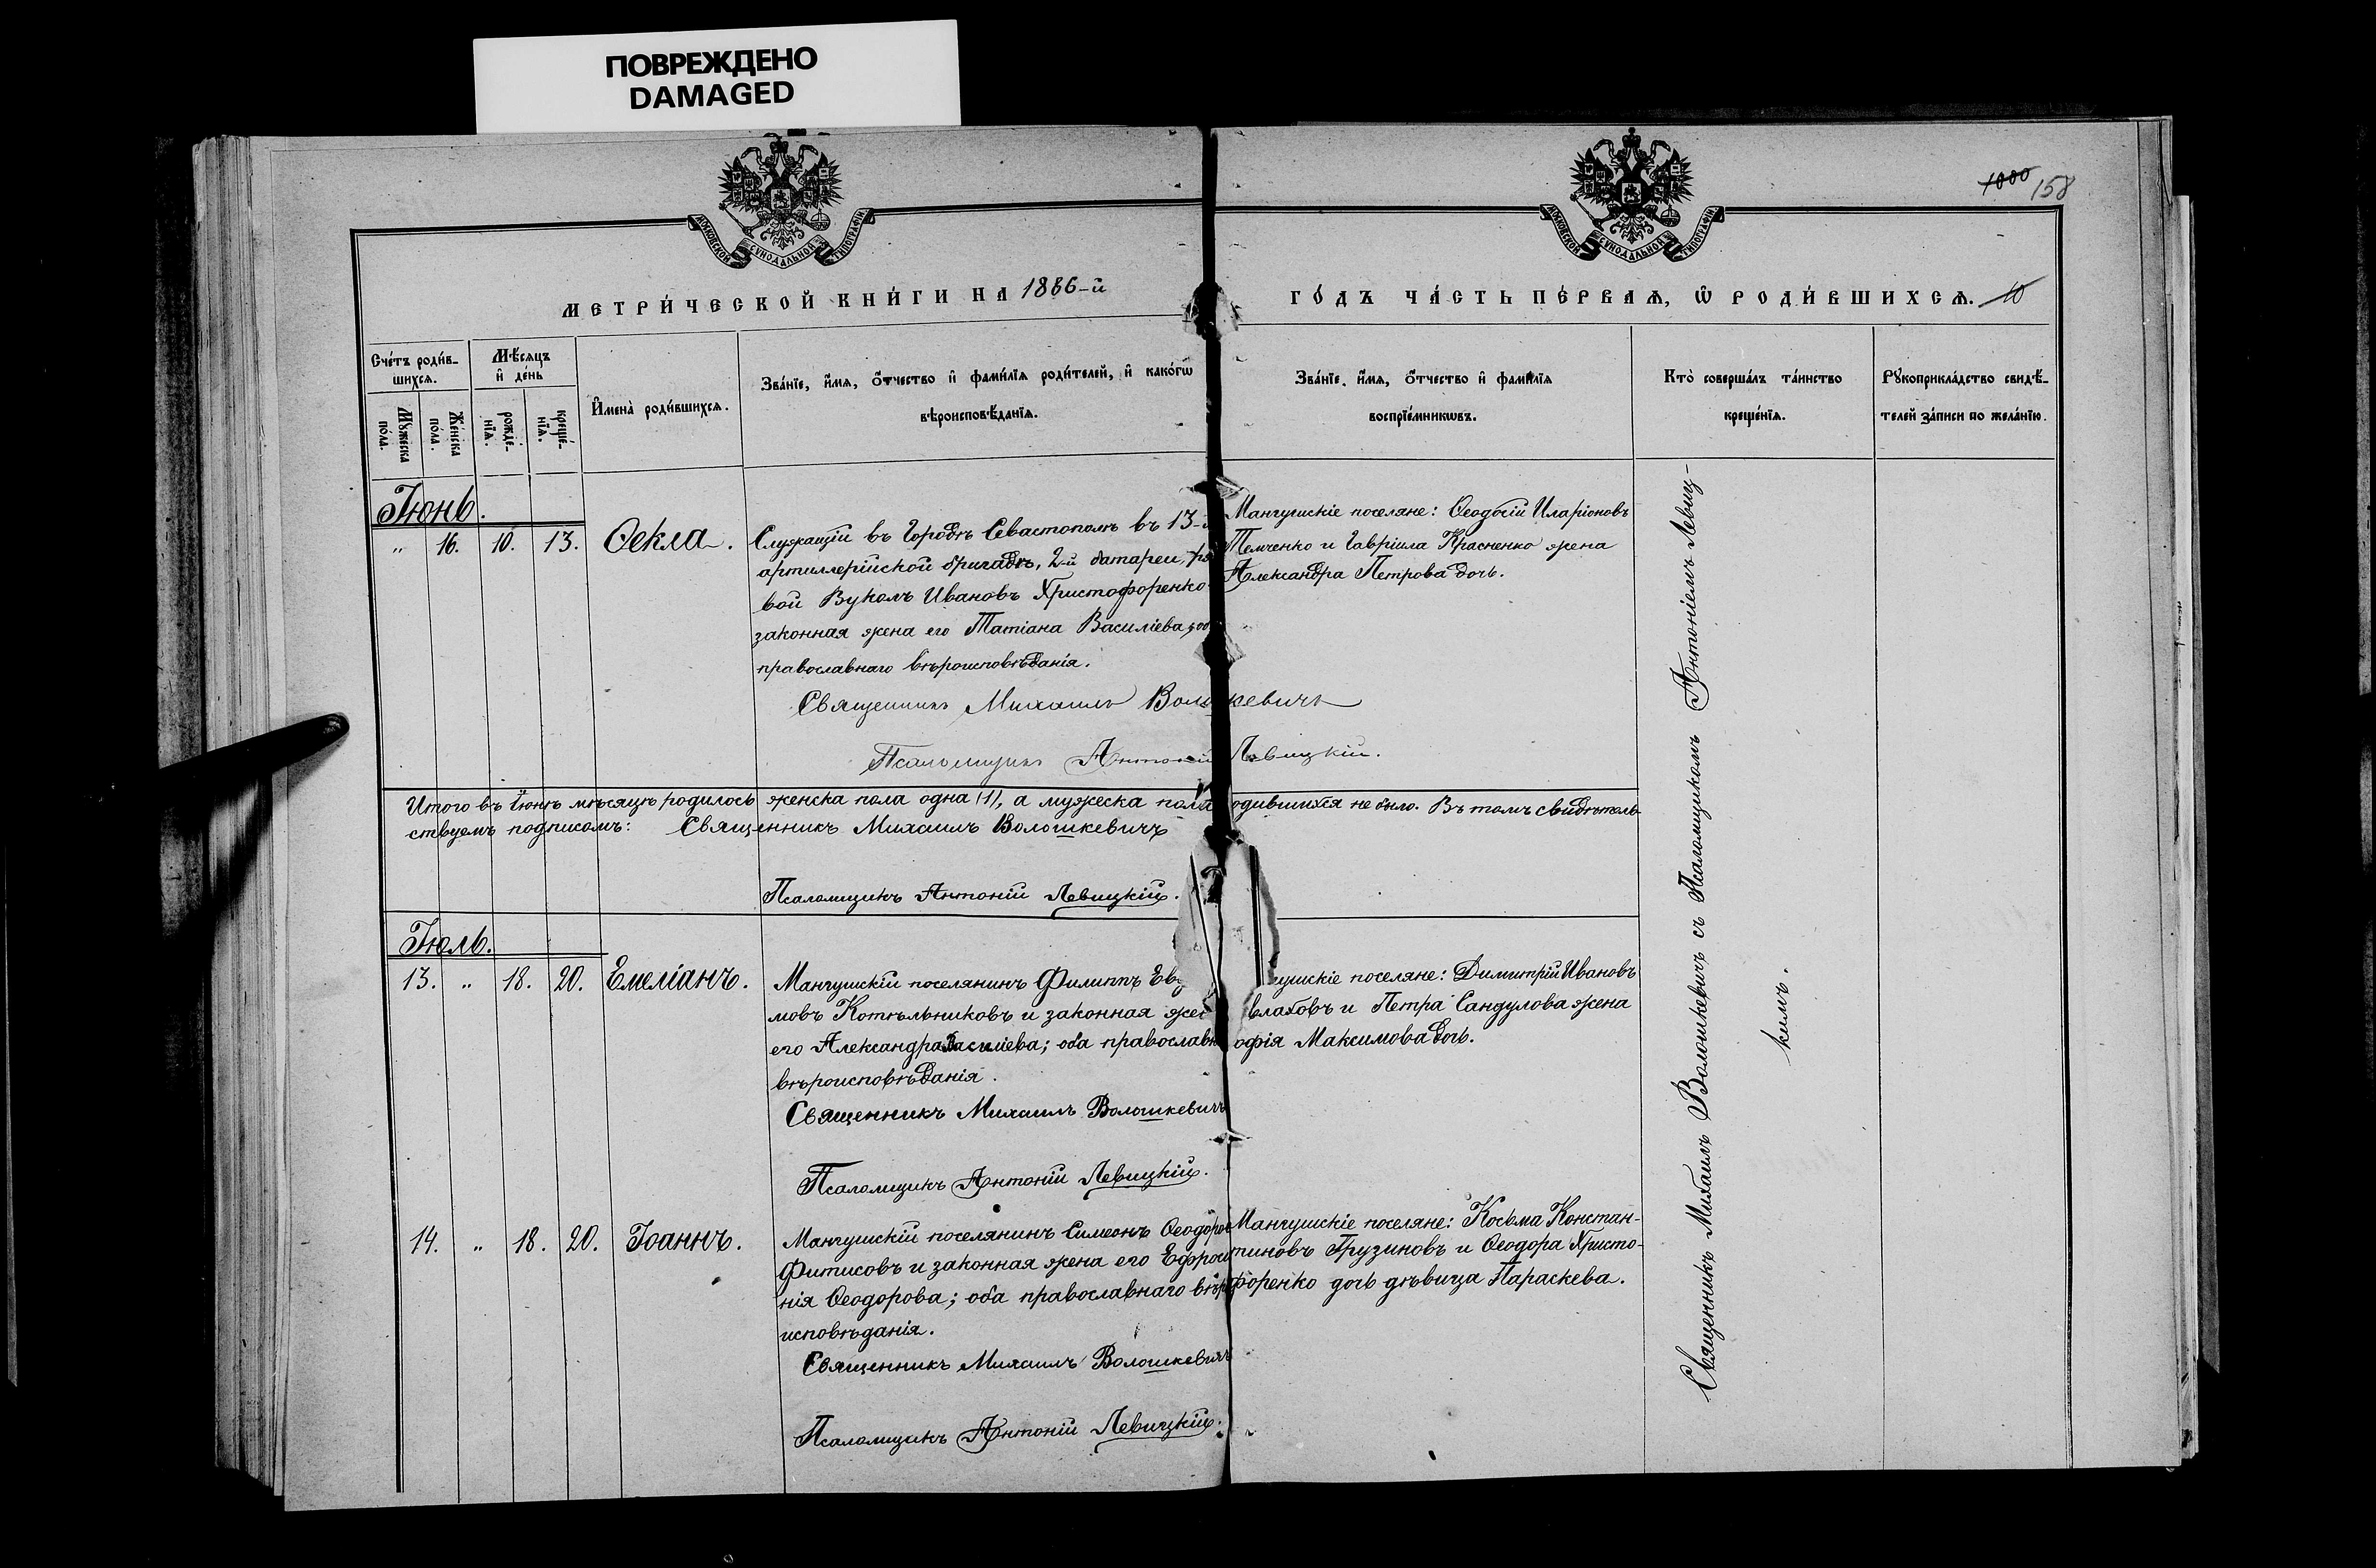 ПОВРЕЖДЕНО
DAMAGED
МОСКОВСКОЙ СѴНОДАЛЬНОЙ ТИПОГРАФІИ
МОСКОВСКОЙ СѴНОДАЛЬНОЙ ТИПОГРАФІИ
1000 158
МЕТРИ́ЧЕСКОЙ КНИ́ГИ НА 1886-й
ГО́ДЪ ЧА́СТЬ ПЕ́РВАЯ, Ѡ РОДИ́ВШИХСЯ. 10
Сче́тъ роди́в-
шихся.
Мꙋ́жеска
по́ла.
Же́нска
по́ла.
Мѣ́сяцъ
и де́нь
рожде́-
нїя.
креще́-
нїя.
Имена̀ роди́вшихся.
Зва́нїе, и́мя, о́тчество и фами́лїя роди́телей, и како́гѡ
вѣроисповѣ́данїя.
Зва́нїе, и́мя, о́тчество и фами́лїя
воспрїе́мникѡвъ.
Кто̀ соверша́лъ та́инство
креще́нїя.
Рꙋкоприкла́дство свидѣ́-
телей за́писи по жела́нїю.
Іюнь.
„ 16. 10. 13. Ѳекла.
Служащій въ Городѣ Севастополѣ въ 13-й
артиллерійской бригадѣ, 2-й батареи, ря
вой Вуколъ Ивановъ Христофоренко
законная жена его Татіана Василіева; об
православнаго вѣроисповѣданія.
Священникъ Михаилъ Волошкевичъ
Псаломщикъ Антоній Левицкій.
Мангушскіе поселяне: Ѳеодосій Иларіоновъ
Темченко и Гавріила Красненко жена
Александра Петрова дочь.
Итого въ Іюнѣ мѣсяцѣ родилось женска пола одна (1), а мужеска пола одившихся не было. Въ томъ свидѣтель-
ствуемъ подписомъ: Священникъ Михаилъ Волошкевичъ
Псаломщикъ Антоній Левицкій.
Іюль.
13. „ 18. 20. Емеліанъ.
Мангушскій поселянинъ Филиппъ Ев
мовъ Котельниковъ и законная жен
его Александра Василіева; оба православн
вѣроисповѣданія.
Священникъ Михаилъ Волошкевичъ
Псаломщикъ Антоній Левицкій.
гушскіе поселяне: Димитрій Ивановъ
влаховъ и Петра Сандулова жена
офія Максимова дочь.
14. „ 18. 20. Іоаннъ.
Мангушскій поселянинъ Симеонъ Ѳеодоров
Фитисовъ и законная жена его Ефроси
нія Ѳеодорова; оба православнаго вѣро
исповѣданія.
Священникъ Михаилъ Волошкевичъ
Псаломщикъ Антоній Левицкій.
Мангушскіе поселяне: Косьма Констан-
тиновъ Грузиновъ и Ѳеодора Христо-
форенко дочь дѣвица Параскева.
Священникъ Михаилъ Волошкевичъ съ Псаломщикомъ Антоніемъ Левиц-
кимъ.